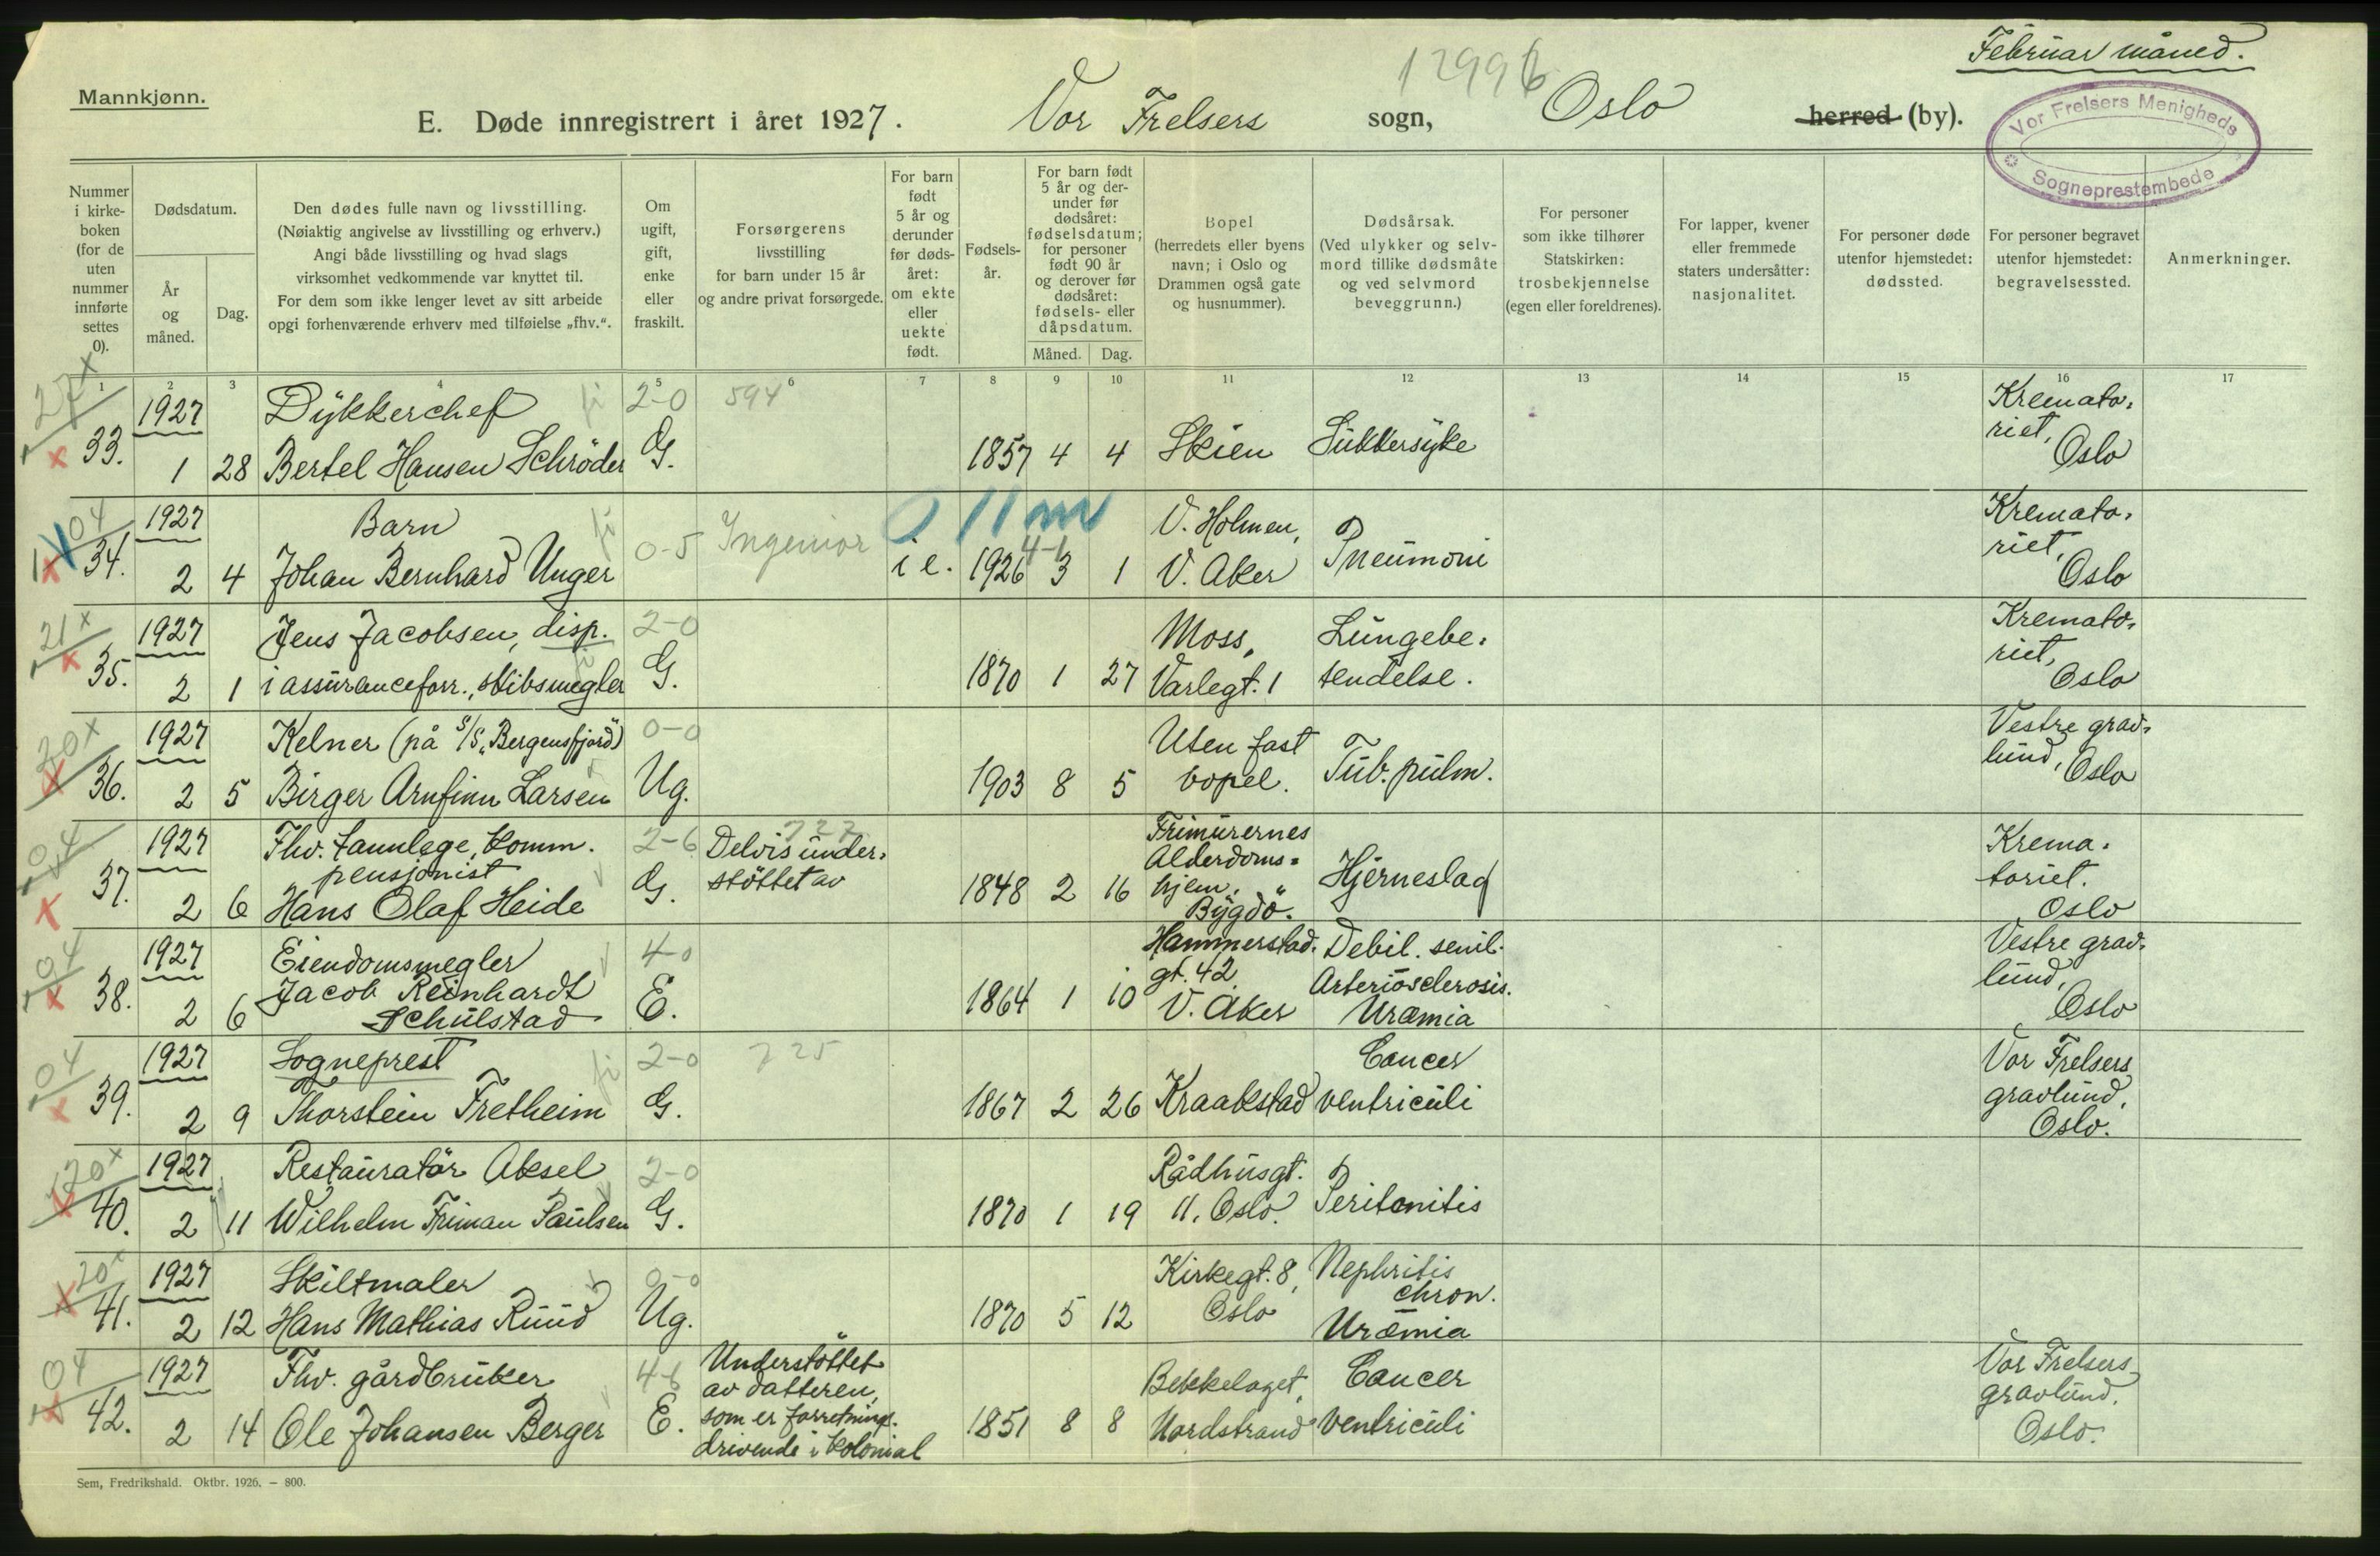 Februar måned.
Mannkjønn.
12996
E. Døde innregistrert i året 1927. Vor Frelsers sogn, Oslo herred (by).
Vor Frelsers Menigheds Sogneprestembede
Nummer i kirke-boken (for de uten nummer innførte settes 0).
Dødsdatum.
År og måned.
Dag.
Den dødes fulle navn og livsstilling.
(Nøiaktig angivelse av livsstilling og erhverv.)
Angi både livsstilling og hvad slags
virksomhet vedkommende var knyttet til.
For dem som ikke lenger levet av sitt arbeide
opgi forhenværende erhverv med tilføielse „fhv.“.
Om ugift, gift, enke eller fraskilt.
Forsørgerens
livsstilling
for barn under 15 år
og andre privat forsørgede.
For barn født 5 år og derunder før døds-året: om ekte eller uekte født.
Fødsels-år.
For barn født 5 år og der-under før dødsåret: fødselsdatum; for personer født 90 år og derover før dødsåret: fødsels- eller dåpsdatum.
Måned. Dag.
Bopel
(herredets eller byens
navn; i Oslo og
Drammen også gate
og husnummer).
Dødsårsak.
(Ved ulykker og selv-
mord tillike dødsmåte
og ved selvmord
beveggrunn.)
For personer
som ikke tilhører
Statskirken:
trosbekjennelse
(egen eller foreldrenes).
For lapper, kvener
eller fremmede
staters undersåtter:
nasjonalitet.
For personer døde
utenfor hjemstedet:
dødssted.
For personer begravet
utenfor hjemstedet:
begravelsessted.
Anmerkninger.
1 2 3 4 5 6 7 8 9 10 11 12 13 14 15 16 17
27x 1927 Dykkerchef 2-0 594 Kremato-
riet,
33. 1 28 Bertel Hansen Schrøder G. 1857 4 4 Skien Sukkersyke Oslo
04 1927 Barn 0 11 m V. Holmen, Kremato-
riet,
34. 2 4 Johan Bernhard Unger 0-5 Ingeniør i e. 1926 4-1 3 1 V. Aker Pneumoni Oslo
21x 1927 Jens Jacobsen, disp. 2-0 Moss, Lungebe- Kremato-
riet,
35. 2 1 i assuranceforr., skibsmegler G. 1870 1 27 Varlegt. 1 tendelse. Oslo
20x 1927 Kelner (på S/S „Bergensfjord“) 0-0 Uten fast Vestre grav-
lund,
36. 2 5 Birger Arnfinn Larsen Ug. 1903 8 5 bopel. Tub. pulm. Oslo
04 1927 Fhv. tannlege, komm. 2-6 727 Delvis under- Frimurernes Krema-
pensjonist støttet av Alderdoms- toriet.
37. 2 6 Hans Olaf Heide G. 1848 2 16 hjem, Bygdö. Hjerneslag Oslo
04 1927 Eiendomsmegler 4-0 Hammerstad- Debil. senil. Vestre grav-
Jacob Reinhardt gt. 42 Arteriosclerosis. lund,
38. 2 6 Schulstad E. 1864 1 10 V. Aker Uræmia Oslo
04 1927 Sogneprest 2-0 725 Cancer Vor Frelsers
39. 2 9 Thorstein Fretheim G. 1867 2 26 Kraakstad ventriculi gravlund,
Oslo.
20x 1927 Restauratør Aksel 2-0 Rådhusgt.
40. 2 11 Wilhelm Friman Paulsen G. 1870 1 19 11, Oslo. Peritonitis
20x 1927 Skiltmaler 0-0 Kirkegt. 8, Nephritis
chron.
41. 2 12 Hans Mathias Ruud Ug. 1870 5 12 Oslo Uræmia
04 1927 Fhv. gårdbruker 4-6 Understøttet Bekkelaget, Cancer Vor Frelsers
av datteren, gravlund,
42. 2 14 Ole Johansen Berger E. som er forretnings- 1851 8 8 Nordstrand ventriculi Oslo.
drivende i kolonial
Sem, Fredrikshald. Oktbr. 1926. – 800.